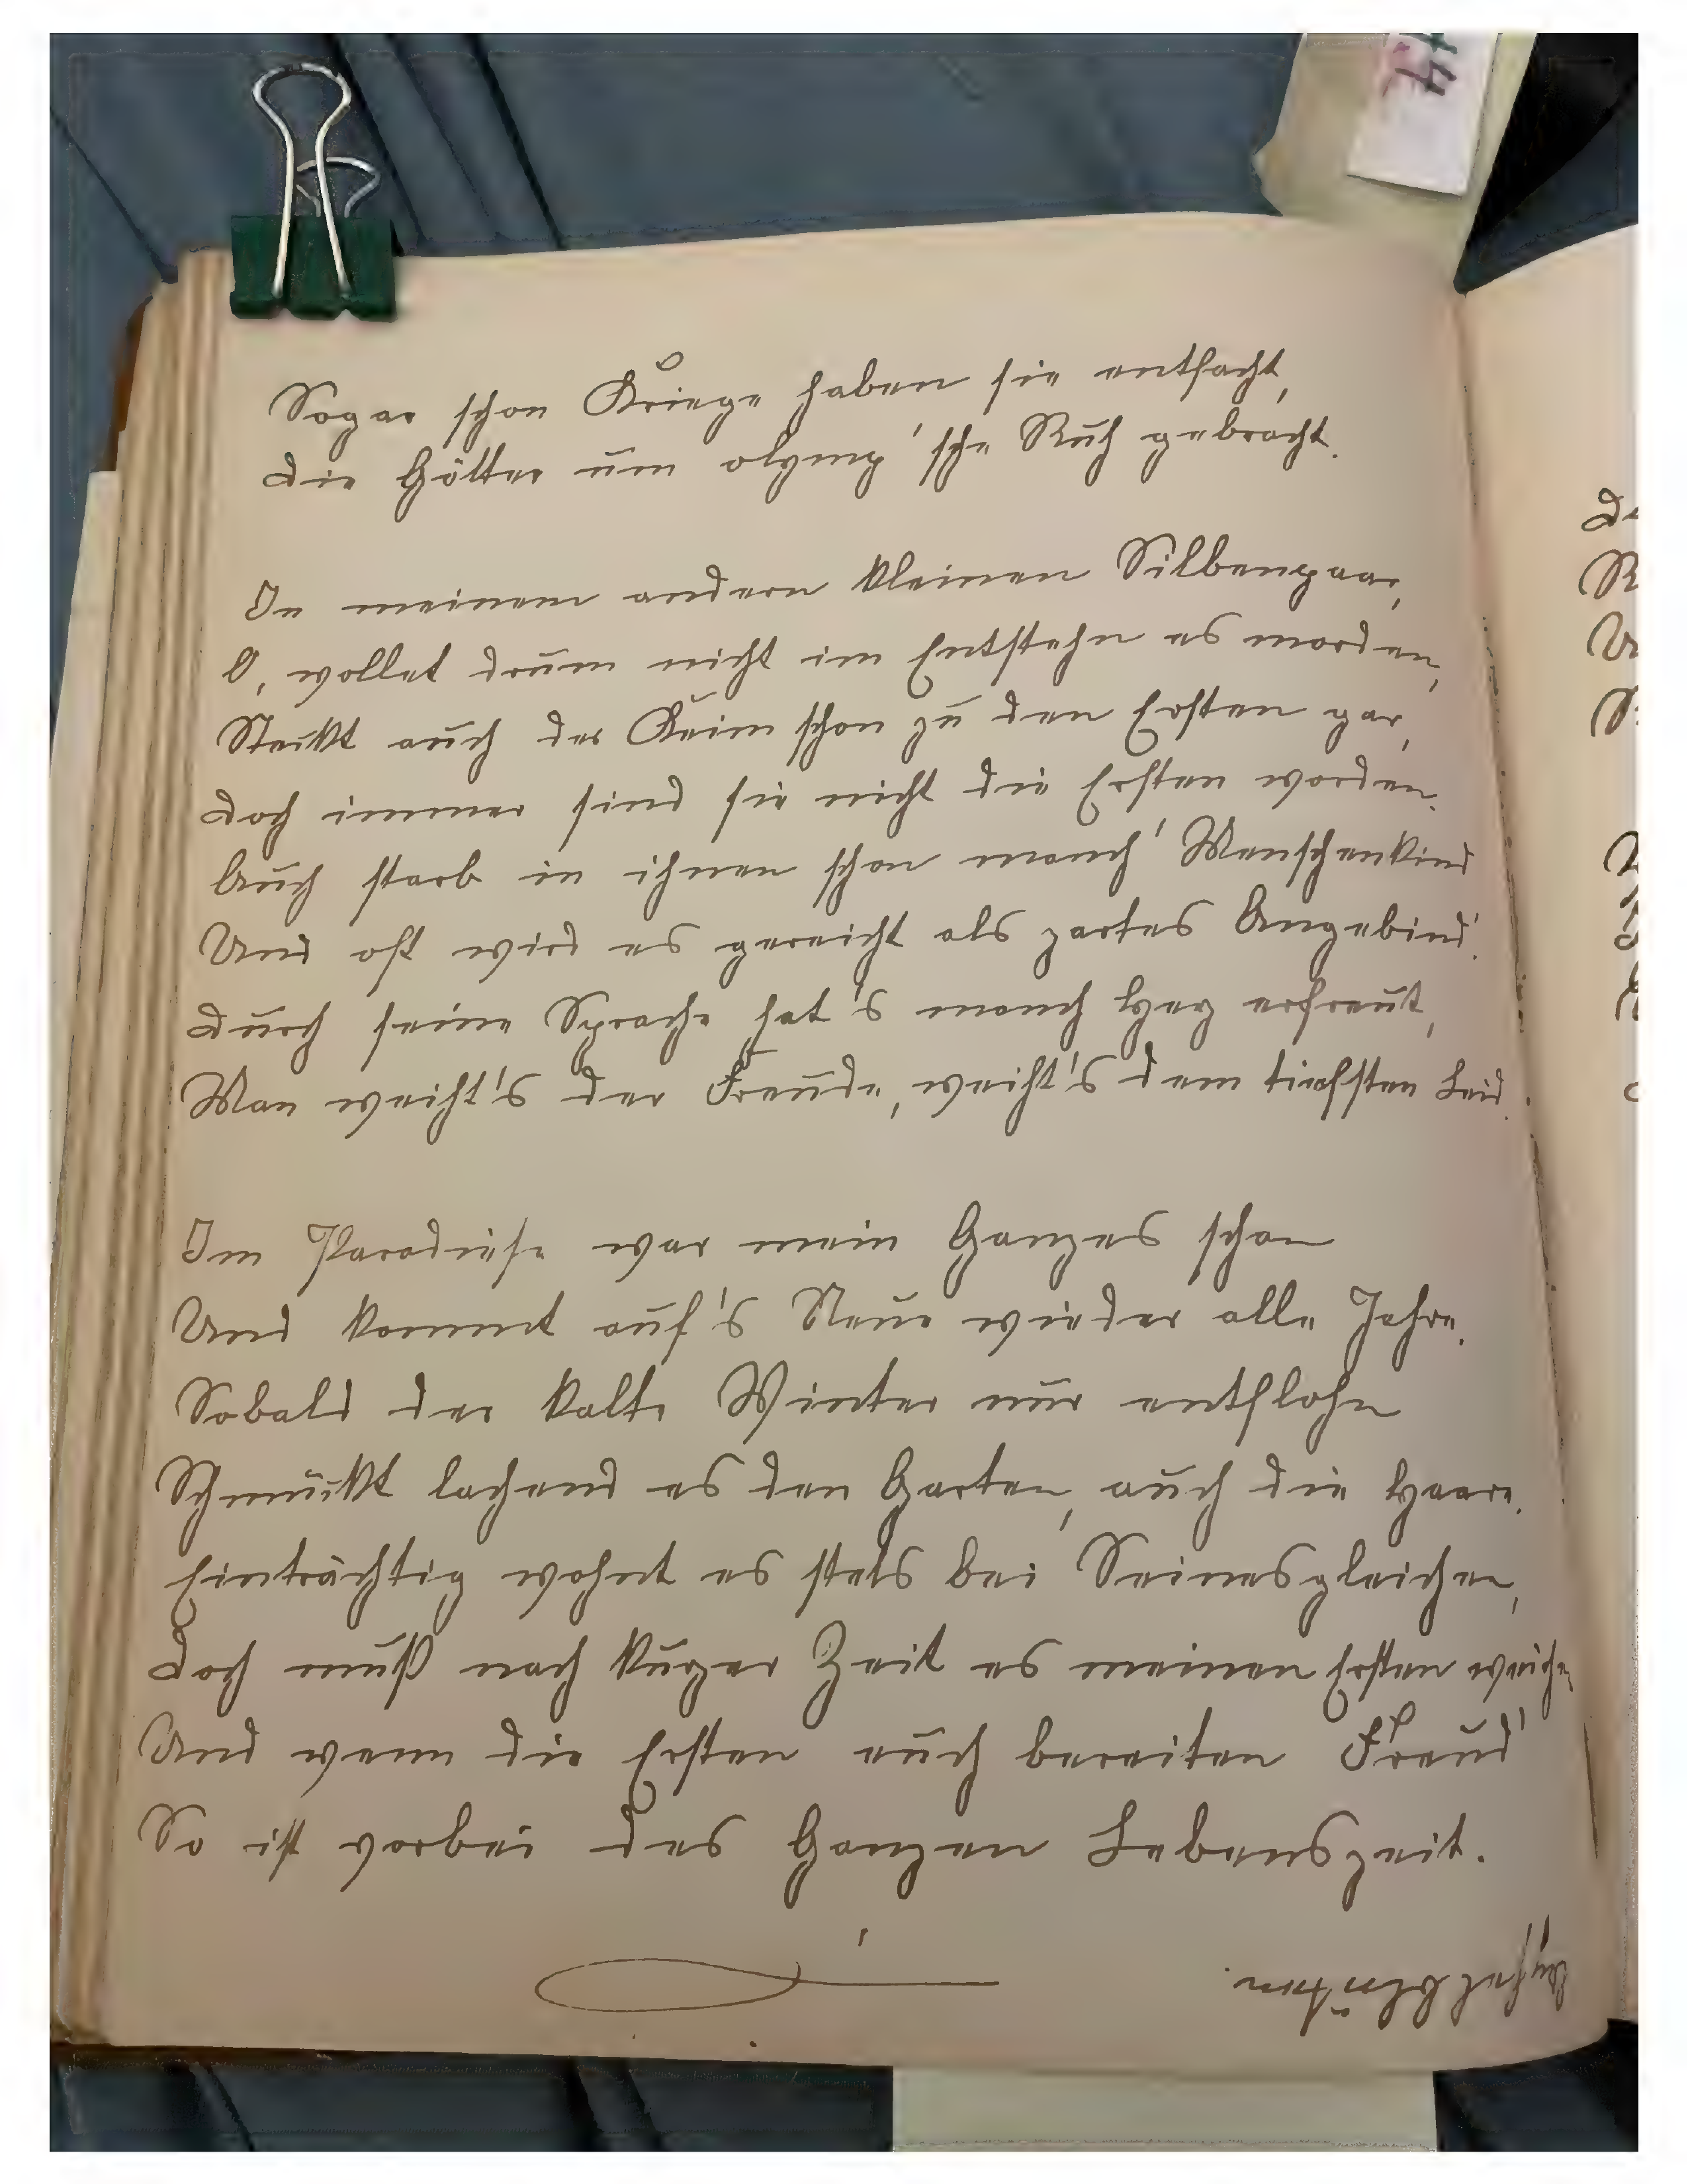 Sogar schon Kriege haben sie entfacht,
Die Götter um olymp'sche Ruh gebracht.
In meinem andern kleinen Silbenpaar,
O, wollet drum nicht im Entstehn es morden,
Steckt auch der Keim schon zu den Ersten gar,
Doch immer sind sie nicht die Ersten worden.
Auch starb in ihnen schon manch' Menschenkind
Und oft wird es gereicht als zartes Angebind'.
Durch seine Sprache hat's manch Herz erfreut,
Man weiht's der Freude, weiht's dem tiefsten Leid.
Im Paradiese war mein Ganzes schon
Und kommt auf's Neue wieder alle Jahre.
Sobald der kalte Winter nur entflohn
Schmückt lachend es den Garten, auch die Haare.
Einträchtig wohnt es stets bei Seinesgleichen,
Doch muß nach kurzer Zeit es meinen Ersten weichen
Und wenn die Ersten euch bereiten Freud'
So ist vorbei des Ganzen Lebenszeit.
Apfelblüten.